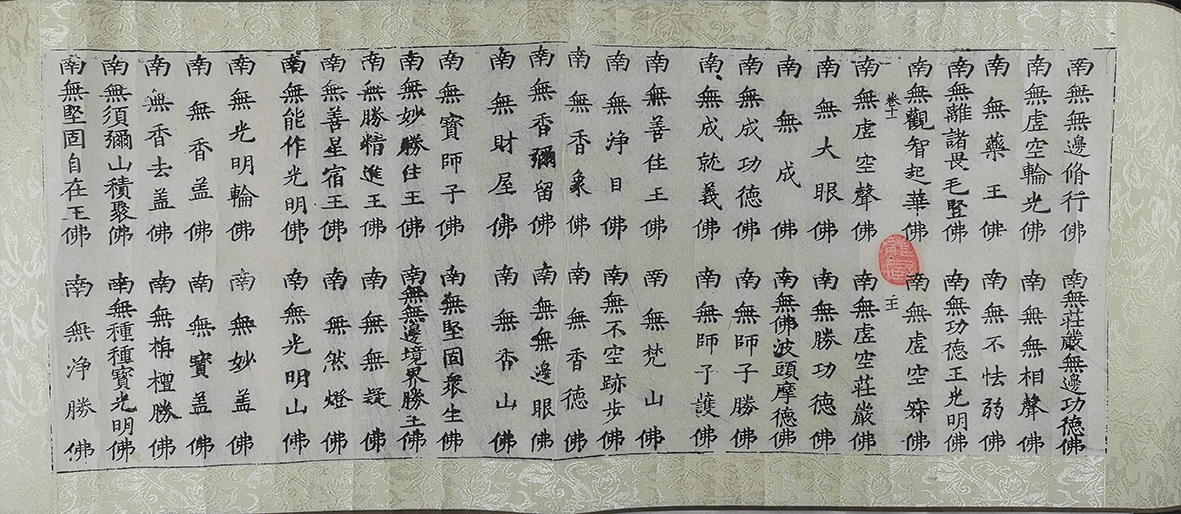 南無無邊脩行佛 南無莊嚴無邊功德佛
南無虛空輪光佛 南無無相聲佛
南無藥王佛 南無不怯弱佛
南無離諸畏毛竪佛 南無功德王光明佛
南無觀智起華佛 南無虛空佛
南無虛空聲佛 南無虛空莊嚴佛
南無大眼佛 南無勝功德佛
南無成佛 南無佛波頭摩德佛
南無成功德佛 南無師子勝佛
南無成就義佛 南無師子護佛
南無善住王佛 南無梵山佛
南無淨目佛 南無不空跡步佛
南無香象佛 南無香德佛
南無香彌留佛 南無無邊眼佛
南無財屋佛 南無香山佛
南無寶師子佛 南無堅固衆生佛
南無妙勝住王佛 南無無邊境界勝王佛
南無勝精進王佛 南無無疑佛
南無善星宿王佛 南無然燈佛
南無能作光明佛 南無光明山佛
南無光明輪佛 南無妙盖佛
南無香盖佛 南無寶盖佛
南無香去盖佛 南無栴檀勝佛
南無須彌山積聚佛 南無種種寶光明佛
南無堅固自在王佛 南無淨勝佛